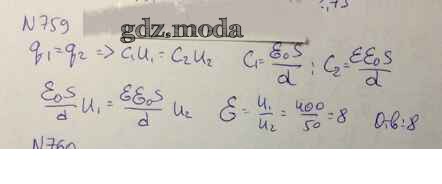 N 759
gdz.moda
q₁ = q₂ => C₁U₁ = C₂U₂ C₁ = ε₀S/d ; C₂ = εε₀S/d
ε₀S/d U₁ = εε₀S/d U₂ ε = U₁/U₂ = 400/50 = 8 Отв: 8
N 760